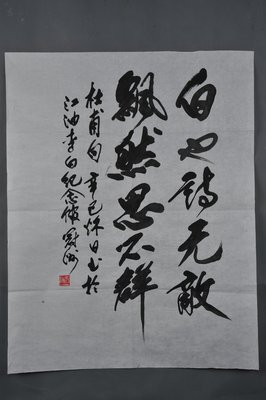 白也诗无敌
飘然思不群
杜甫句辛巳秋日书于
江油李白纪念馆